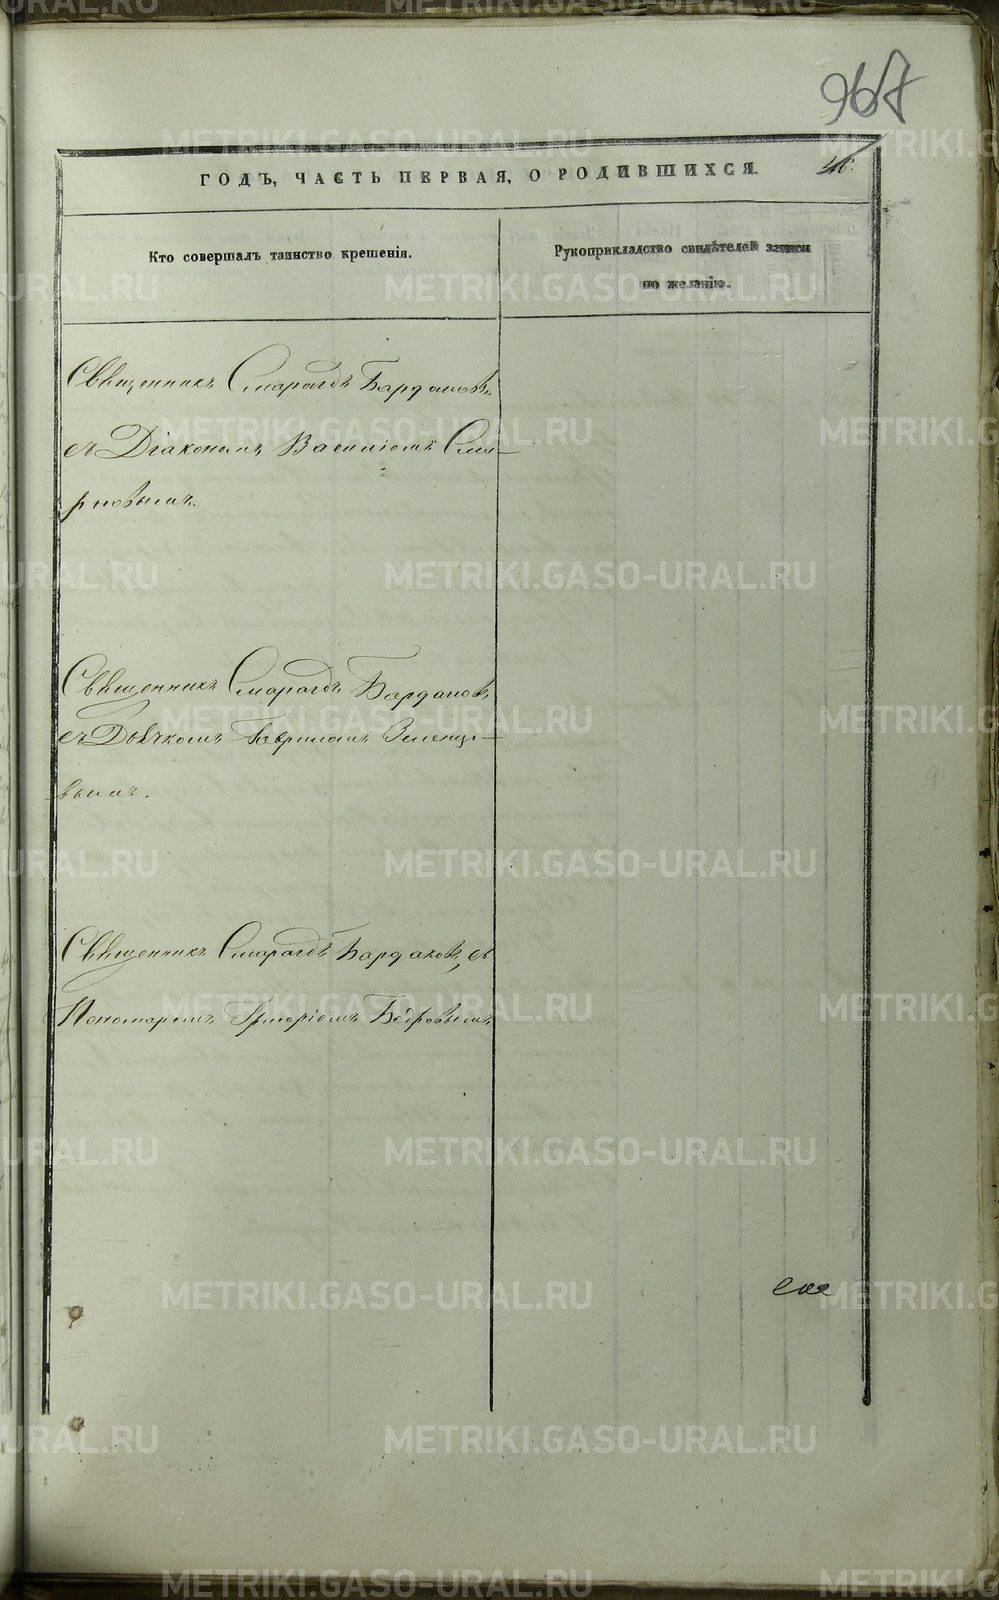 967
46.
ГОДЪ, ЧАСТЬ ПЕРВАЯ, О РОДИВШИХСЯ.
Кто совершалъ таинство крещенія.
Рукоприкладство свидѣтелей записи
по желанію.
Священникъ Смарагдъ Бардаковъ,
съ Діакономъ Василіемъ Сми-
рновымъ.
Священникъ Смарагдъ Бардаковъ
съ Дьячкомъ Гавриломъ Зеленцо-
вымъ.
Священникъ Смарагдъ Бардаковъ, съ
Пономаремъ Григоріемъ Бобровымъ
METRIKI.GASO-URAL.RU